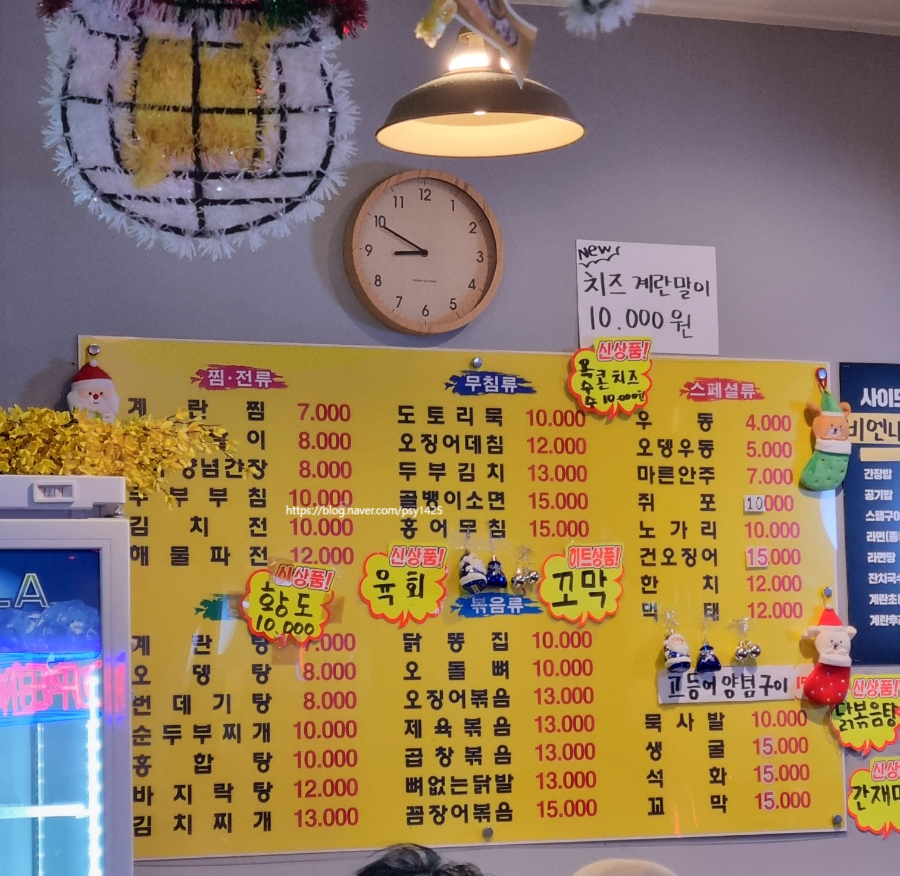 12
11
1
10
2
9
3
8
4
7
5
6
New
치즈 계란말이
10.000원
신상품!
콘치즈
10.000원
찜·전류
계란찜 7.000
이 8.000
양념간장 8.000
두부부침 10.000
김치전 10.000
해물파전 12.000
무침류
도토리묵 10.000
오징어데침 12.000
두부김치 13.000
골뱅이소면 15.000
홍어무침 15.000
스페셜류
우동 4.000
오뎅우동 5.000
마른안주 7.000
쥐포 10.000
노가리 10.000
건오징어 15.000
한치 12.000
먹태 12.000
https://blog.naver.com/psy1425
신상품!
황도
10.000
신상품!
육회
히트상품!
꼬막
계란탕 7.000
오뎅탕 8.000
번데기탕 8.000
순두부찌개 10.000
홍합탕 10.000
바지락탕 12.000
김치찌개 13.000
볶음류
닭똥집 10.000
오돌뼈 10.000
오징어볶음 13.000
제육볶음 13.000
곱창볶음 13.000
뼈없는닭발 13.000
꼼장어볶음 15.000
고등어양념구이
묵사발 10.000
생굴 15.000
석화 15.000
꼬막 15.000
사이드
비엔나
간장밥
공기밥
스팸구이
라면
라면땅
잔치국수
계란후라
신상품!
닭볶음탕
신상
간재미
LA